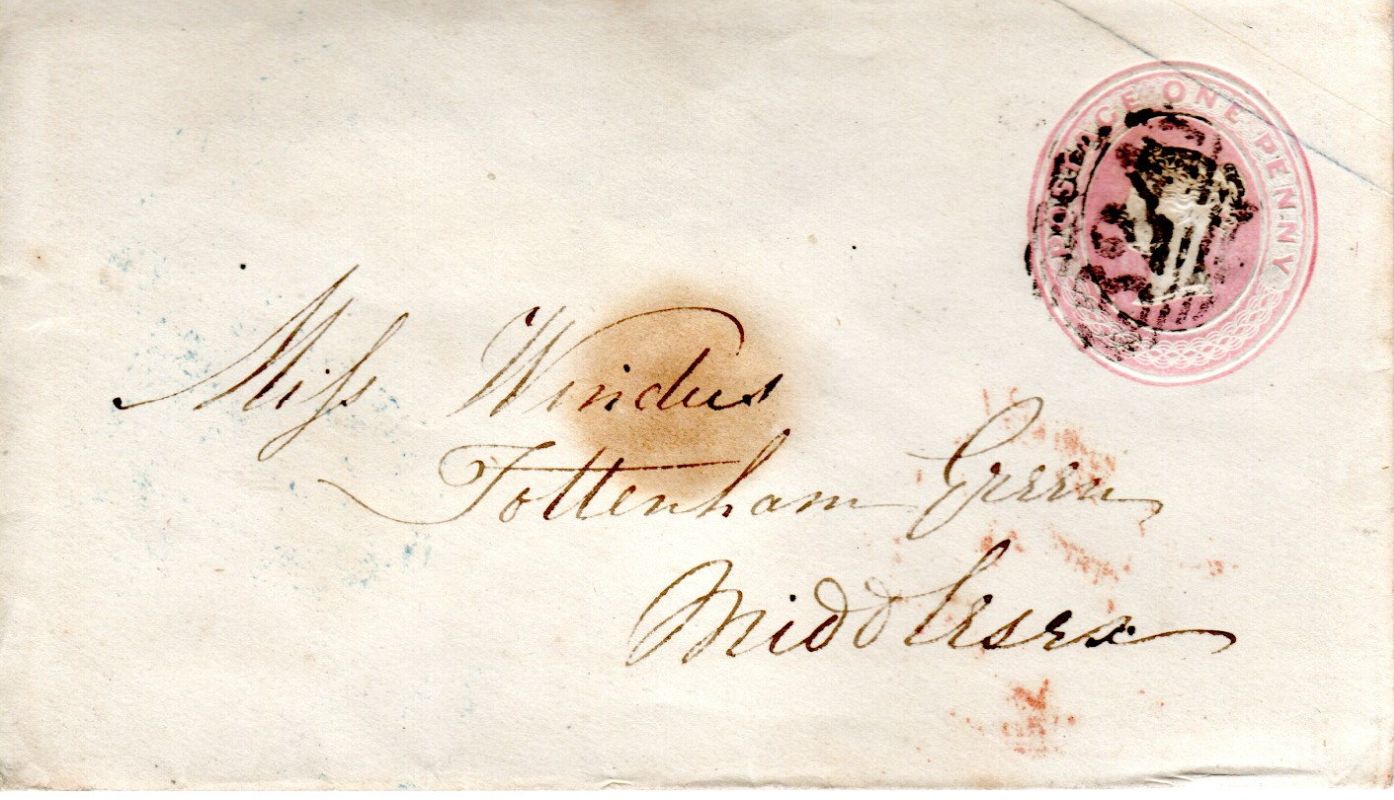 POSTAGE ONE PENNY
Miſs Windus
Tottenham Green
Middlesex